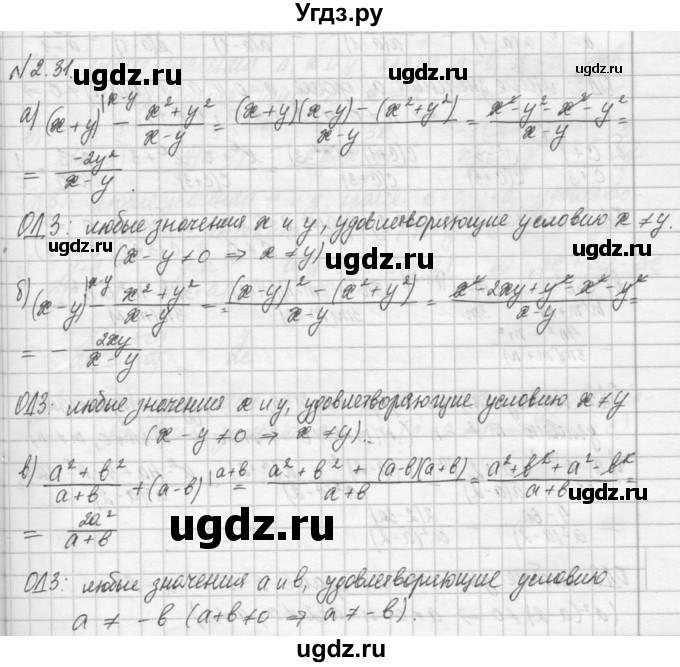 Угдз.ру
№2.31.
ugdz.ru ugdz.ru ugdz.ru
а) (x+y)|x-y - x²+y²/x-y = (x+y)(x-y)-(x²+y²)/x-y = x²-y²-x²-y²/x-y =
= -2y²/x-y.
ОДЗ: любые значения x и y, удовлетворяющие условию x ≠ y.
(x-y≠0 ⇒ x≠y)
ugdz.ru ugdz.ru ugdz.ru
б) (x-y)|x-y - x²+y²/x-y = (x-y)²-(x²+y²)/x-y = x²-2xy+y²-x²-y²/x-y =
= - 2xy/x-y
ugdz.ru ugdz.ru ugdz.ru
ОДЗ: любые значения x и y, удовлетворяющие условию x ≠ y
(x-y≠0 ⇒ x≠y).
в) a²+b²/a+b + (a-b)|a+b = a²+b²+(a-b)(a+b)/a+b = a²+b²+a²-b²/a+b =
= 2a²/a+b
ugdz.ru ugdz.ru
ОДЗ: любые значения a и b, удовлетворяющие условию
a ≠ -b (a+b≠0 ⇒ a≠-b).
ugdz.ru ugdz.ru ugdz.ru